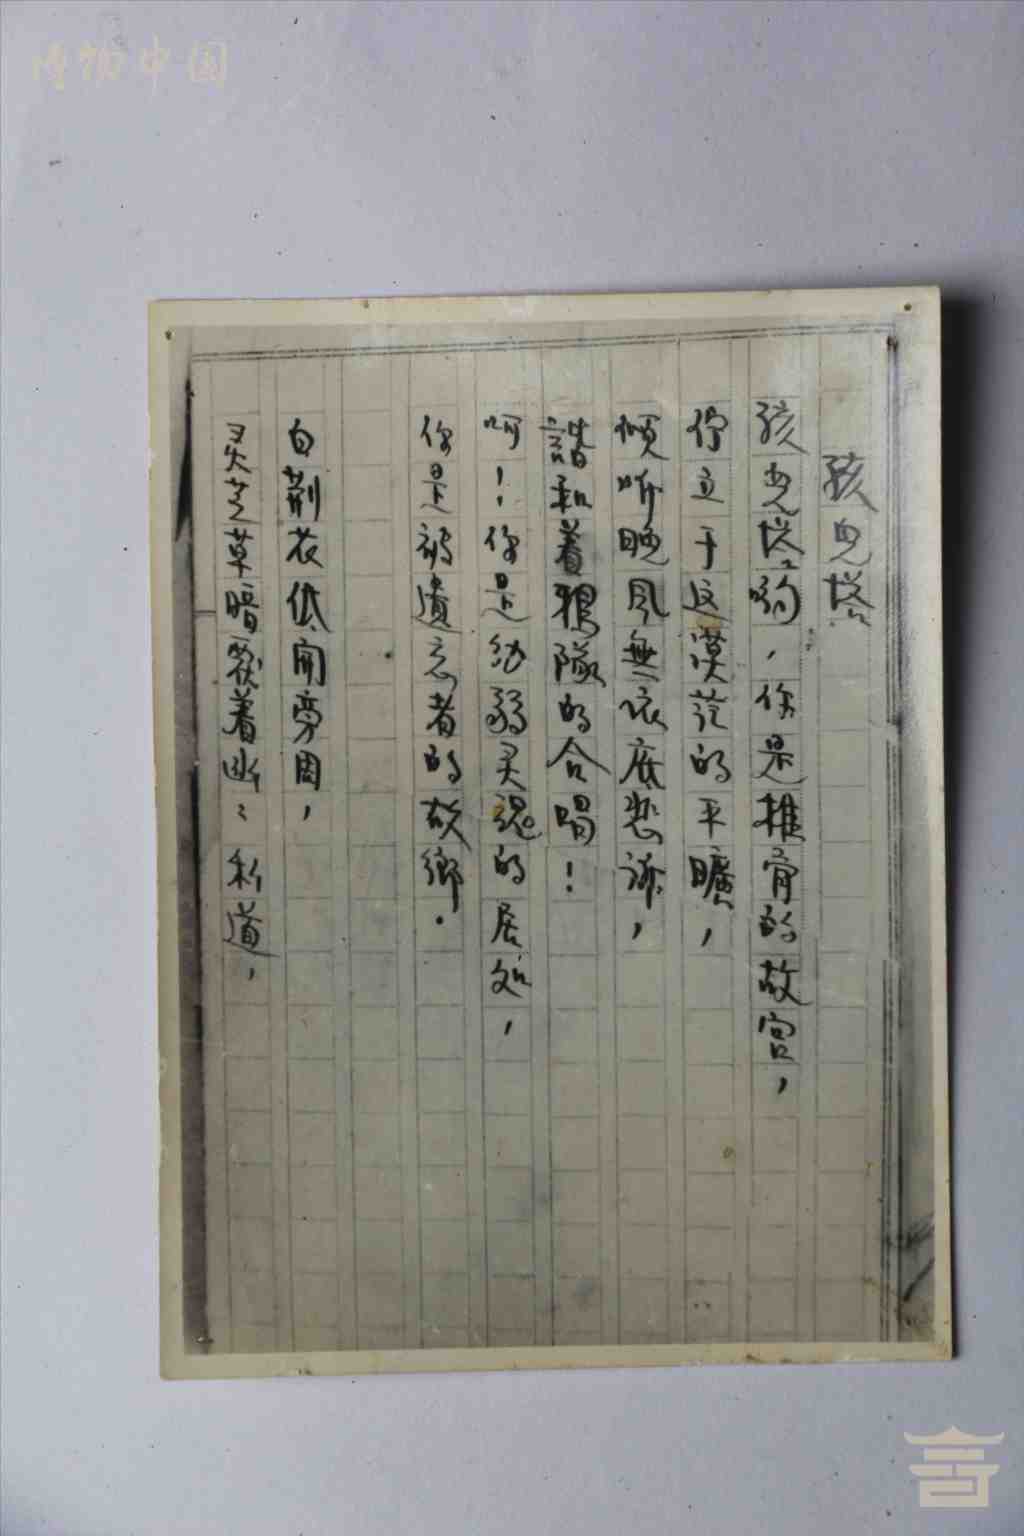 博物中国
孩兒塔
孩兒塔哟，你是稚骨的故宫，
佇立于这漠茫的平曠，
傾听晚风無依底悲訴，
諧和着鴉隊的合唱！
呵！你是幼弱灵魂的居处，
你是被遺忘者的故鄉。
白荆花低開旁周，
灵芝草暗覆着幽〻私道，